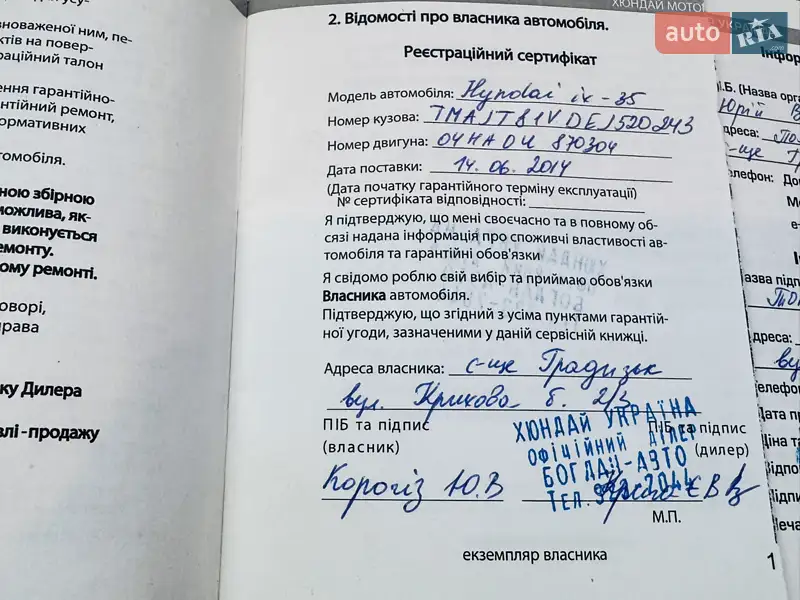 новаженої ним, пе-
ктів на повер-
раційний талон
ення гарантійно-
нтійний ремонт,
ормативних
томобіля.
ною збірною
можлива, як-
виконується
емонту.
ому ремонті.
оворі,
рава
ку Дилера
влі - продажу
2. Відомості про власника автомобіля.
Реєстраційний сертифікат
Модель автомобіля: Hyndai ix - 35
Номер кузова: TMAJT81VDEJ520243
Номер двигуна: D4HADU 870304
Дата поставки: 14. 06. 2014
(Дата початку гарантійного терміну експлуатації)
№ сертифіката відповідності:
Я підтверджую, що мені своєчасно та в повному об-
сязі надана інформація про споживчі властивості ав-
томобіля та гарантійні обов'язки
Я свідомо роблю свій вибір та приймаю обов'язки
Власника автомобіля.
Підтверджую, що згідний з усіма пунктами гарантій-
ної угоди, зазначеними у даній сервісній книжці.
Адреса власника: с-ще Градизьк
вул. Крихова б. 2/3
ПІБ та підпис
(власник)
ПІБ та підпис
(дилер)
ХЮНДАЙ УКРАЇНА
ОФІЦІЙНИЙ ДІЛЕР
БОГДАН-АВТО
ТЕЛ.
Корогіз Ю.В
М.П.
екземпляр власника
1
ХЮНДАЙ МОТОР
auto RIA .com
Інфор
І.Б. (Назва орга
Юрій В
дреса: По
с-ще Гр
елефон: До
М
e-
азва підп
дреса:
вул
елефо
Дата пр
Ціна та
Відпо
Підпи
Печа